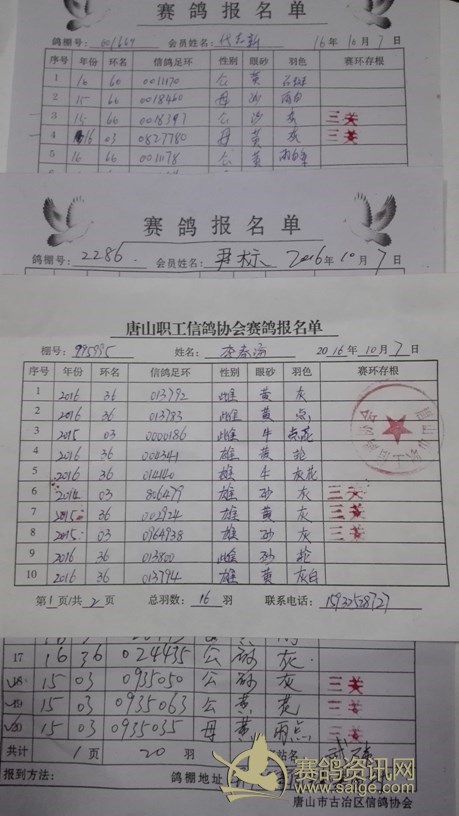 赛鸽报名单
鸽棚号: 会员姓名: 16年10月7日
序号 年份 环名 信鸽足环 性别 眼砂 羽色 赛环存根
1 16 60 0011170 公 黄
2 15 60 0018460 母 沙 雨白
3 15 60 0018397 公 沙 灰 三关
4 16 03 0827780 母 黄 灰 三关
5 16 60 0011178 公 黄
赛鸽报名单
鸽棚号: 2286. 会员姓名: 尹标 2016年10月7日
唐山职工信鸽协会赛鸽报名单
棚号: 995995 姓名: 2016年10月7日
序号 年份 环名 信鸽足环 性别 眼砂 羽色 赛环存根
1 2016 36 013792 雌 黄 灰
2 2016 36 013783 雌 黄 点
3 2015 03 0000186 雌 牛
4 2016 36 004341 雄 黄 轮
5 2016 36 014140 雄 牛 灰花
6 2014 03 806479 雄 砂 灰 三关
7 2015 36 002924 雄 黄 灰 三关
8 2015 03 0964938 雄 砂 灰 三关
9 2016 36 013800 雌 砂 轮
10 2016 36 013794 雄 黄 灰白
第1页/共2页 总羽数: 16羽 联系电话:
17 16 36 024435 公 砂 灰
18 15 03 0935050 公 砂 灰 三关
19 15 03 0935063 公 黄 三关
20 15 03 0935035 母 黄 雨点 三关
共计 1页 20羽
报到方法: 鸽棚地址
赛鸽资讯网
www.saige.com
唐山市古冶区信鸽协会